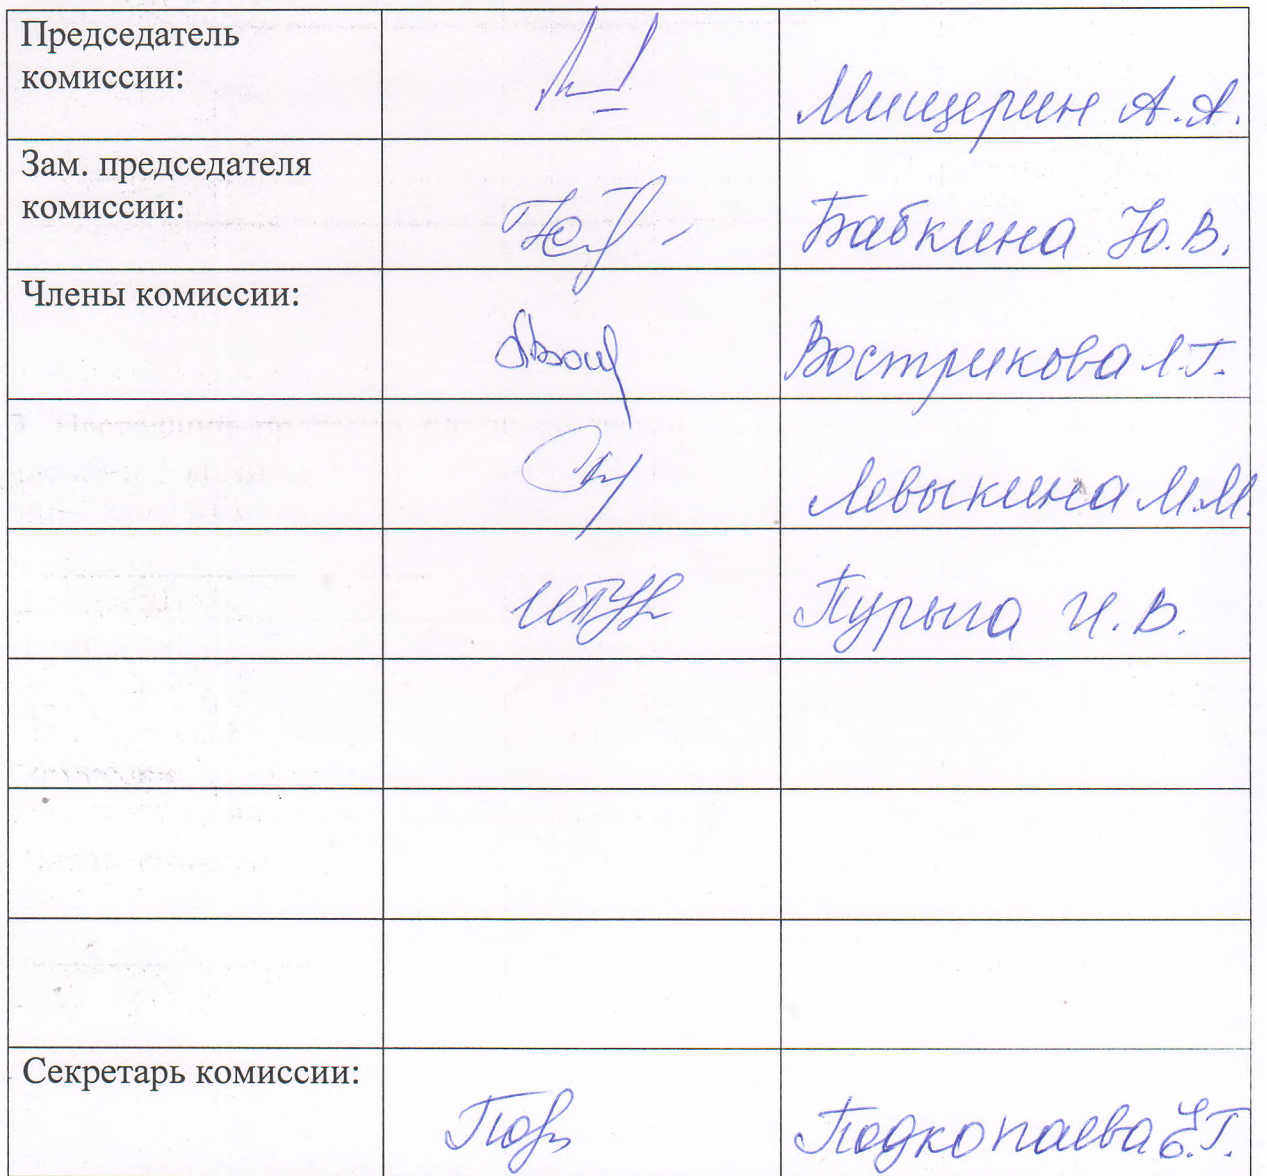 Председатель
комиссии:
Мищерин А.А.
Зам. председателя
комиссии:
Бабкина Ю.В.
Члены комиссии:
Вострикова Л.Г.
Левыкина М.М.
Пурыга И.В.
Секретарь комиссии:
Подкопаева Е.Г.